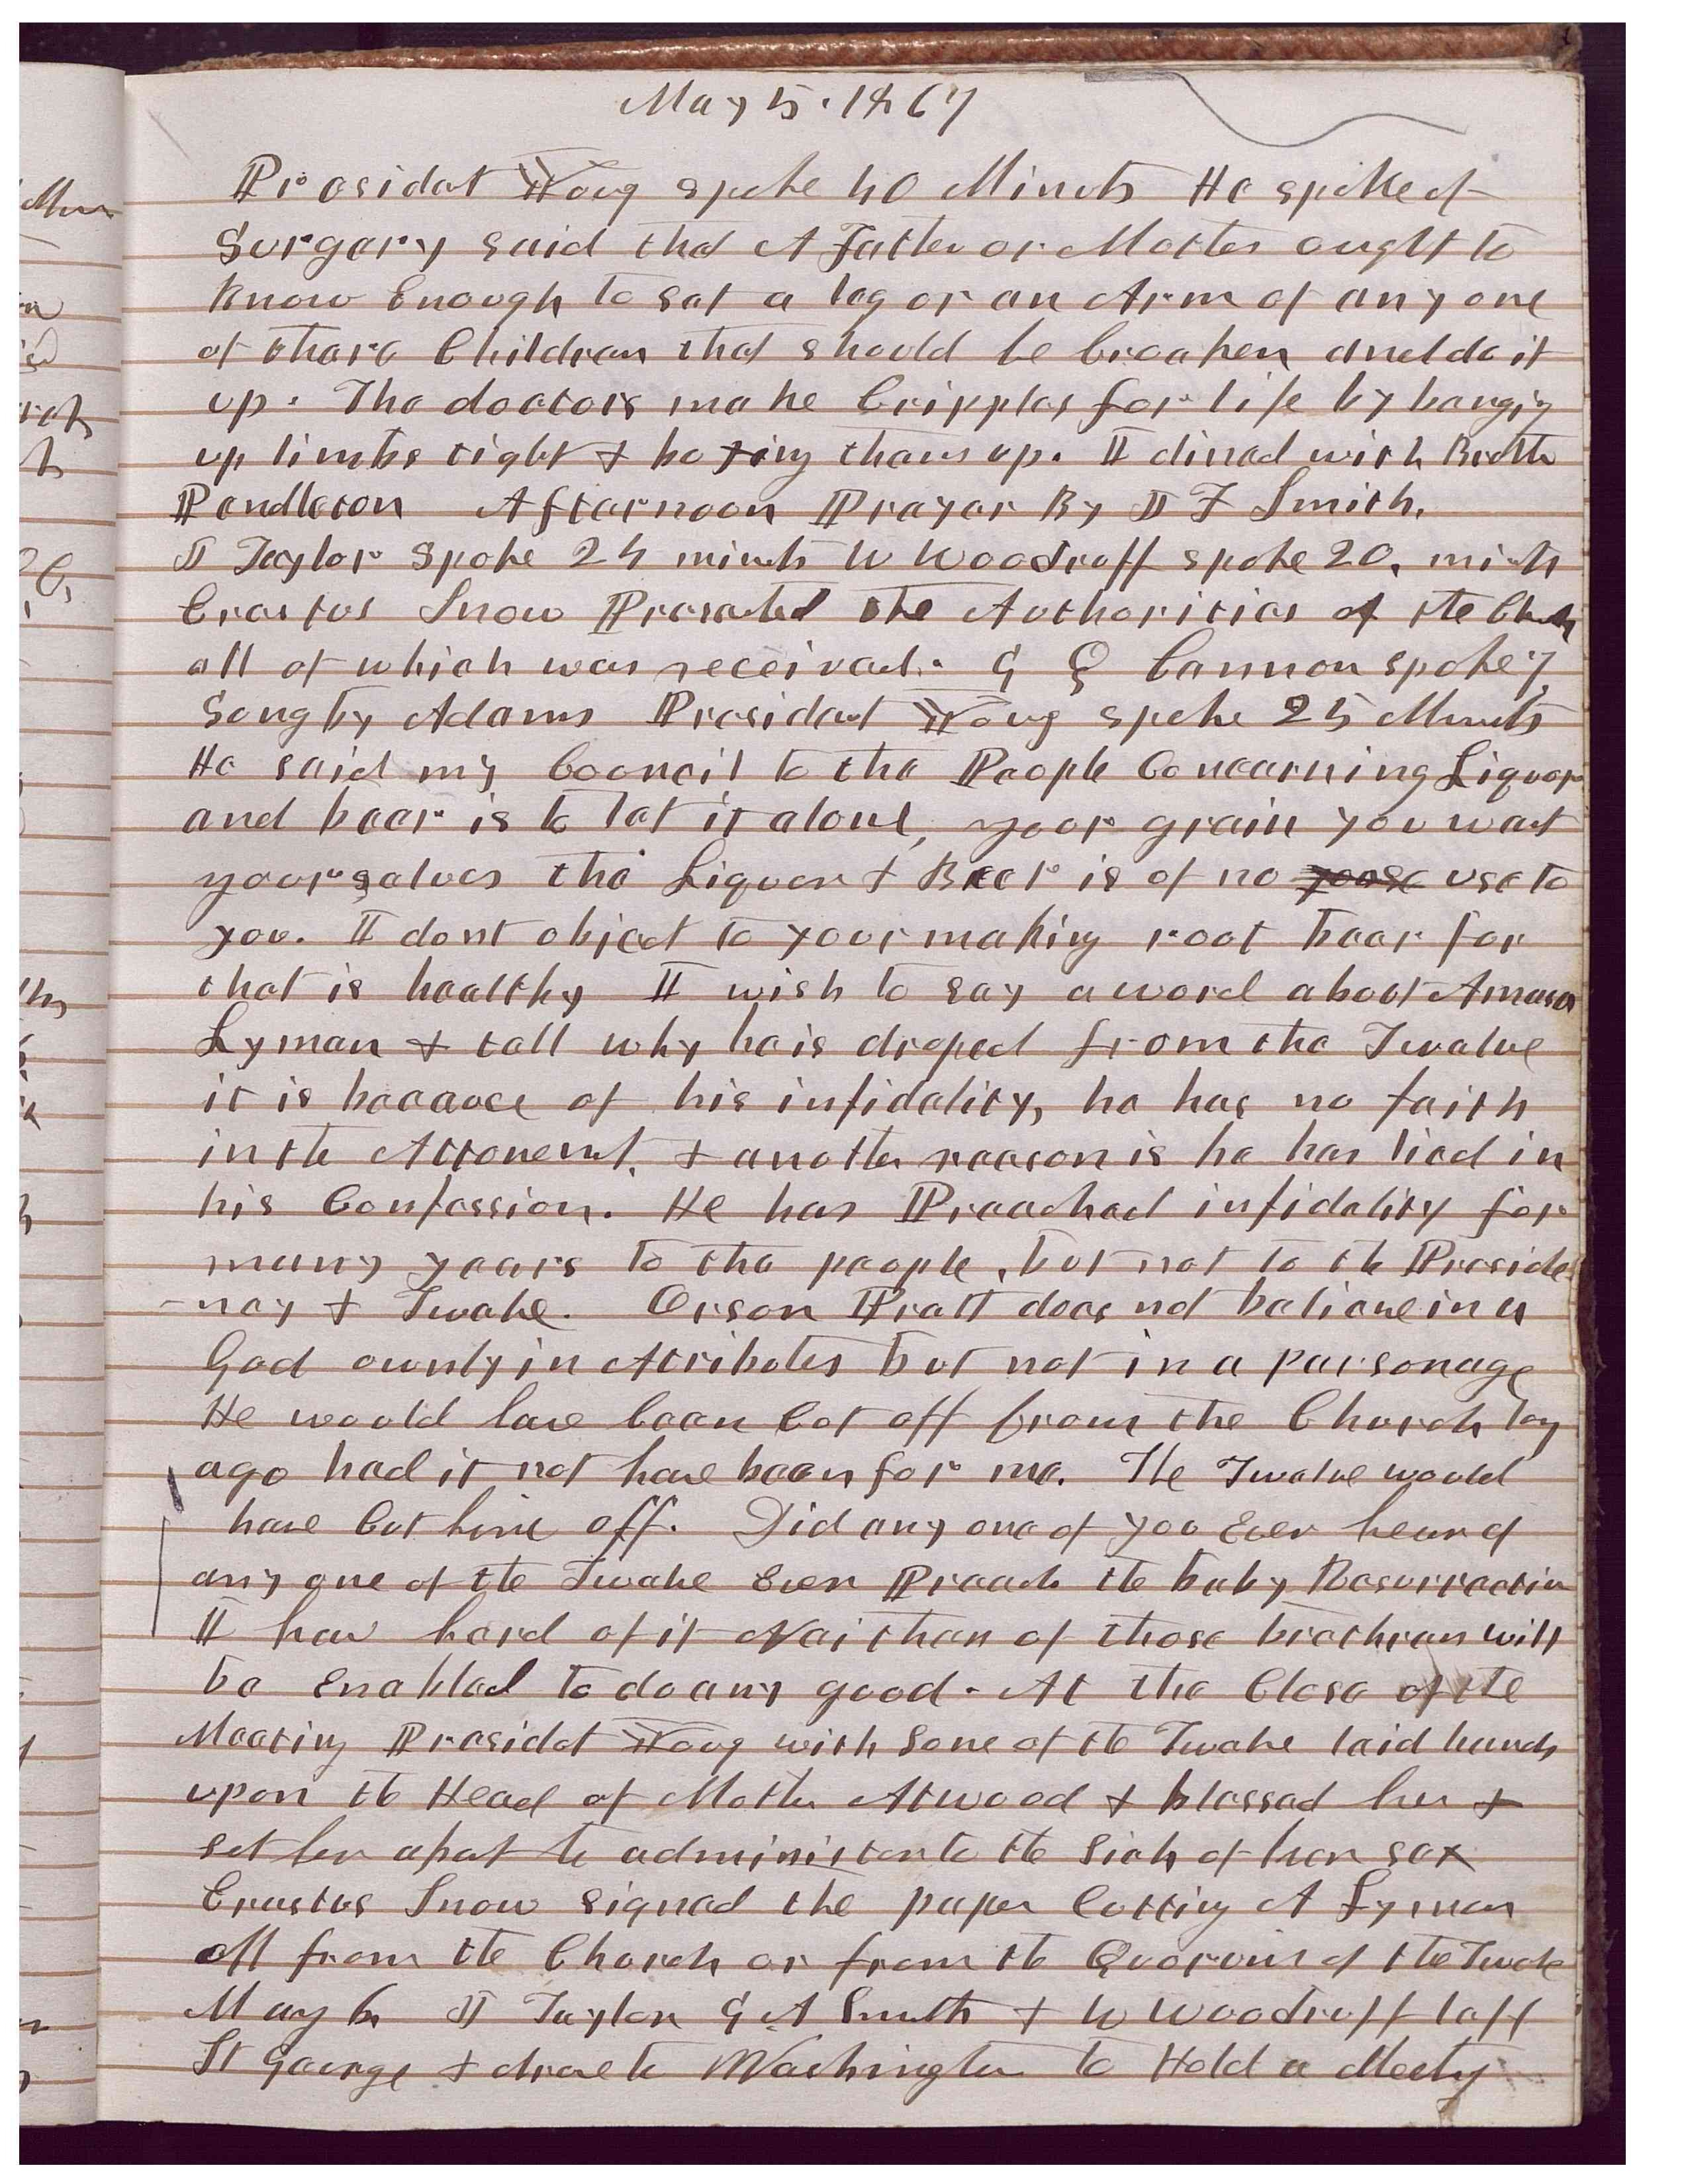 May 5. 1867
Presidet Young spoke 40 Minuts He spoke of
Surgery said that A Father or Mother ought to
Know Enough to set a leg or an Arm of any one
of thare Children that should be broaken and do it
up. The doctors make Cripples for life by banging
up limbs tight & boxing them up. I dined with Brother
Pendleton Afternoon Prayer By J F Smith.
J Taylor Spoke 24 minuts W Woodruff spoke 20, minuts
Erastus Snow Presented the Authorities of the Church
all of which was received. G Q Cannon spoke 7
Song by Adams President Young spoke 25 Minuts
He said my Council to the People Concerning Liquor
and beer is to let it alone, your grain you want
yourselves the Liquor & Beer is of no use to
you. I dont object to your making root beer for
that is healthy I wish to say a word about Amasa
Lyman & tell why he is droped from the Twelve
it is because of his infidelity, he has no faith
in the Attonement, & another reason is he has lied in
his Confession. He has Preached infidelity for
many years to the people, but not to the Preside
-ncy & Twelve. Orson Pratt does not believe in a
God ownly in Atributes but not in a personage
He would have been Cut off from the Church long
ago had it not have been for me. The Twelve would
have Cut him off. Did any one of you Ever hear of
any one of the Twelve Ever Preach the baby Resurrection
I have herd of it Neither of those brethren will
be Enabled to do any good. At the Close of the
Meeting Presidet Young with Some of the Twelve laid hands
upon the Head of Mother Atwood & blessed her &
set her apart to administer to the Sick of her sex
Erastus Snow signed the paper Cutting A Lyman
off from the Church or from the Quorum of the Twelve
May 6 J Taylor G A Smith & W Woodruff left
St George & drove to Washington to Hold a Meeting